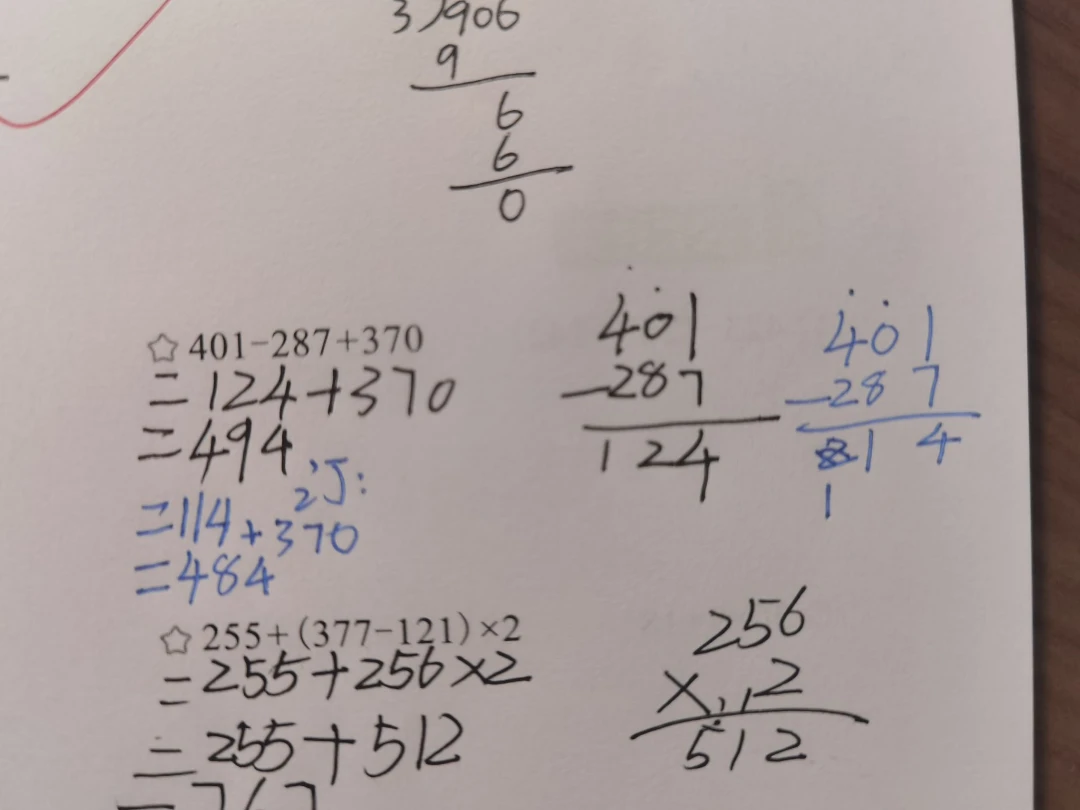 3)906
9
6
6
0
☆401-287+370
=124+370
=494
订:
=114+370
=484
401
-287
124
401
-287
1 4
1
☆255+(377-121)×2
=255+256×2
=255+512
=767
256
×2
512